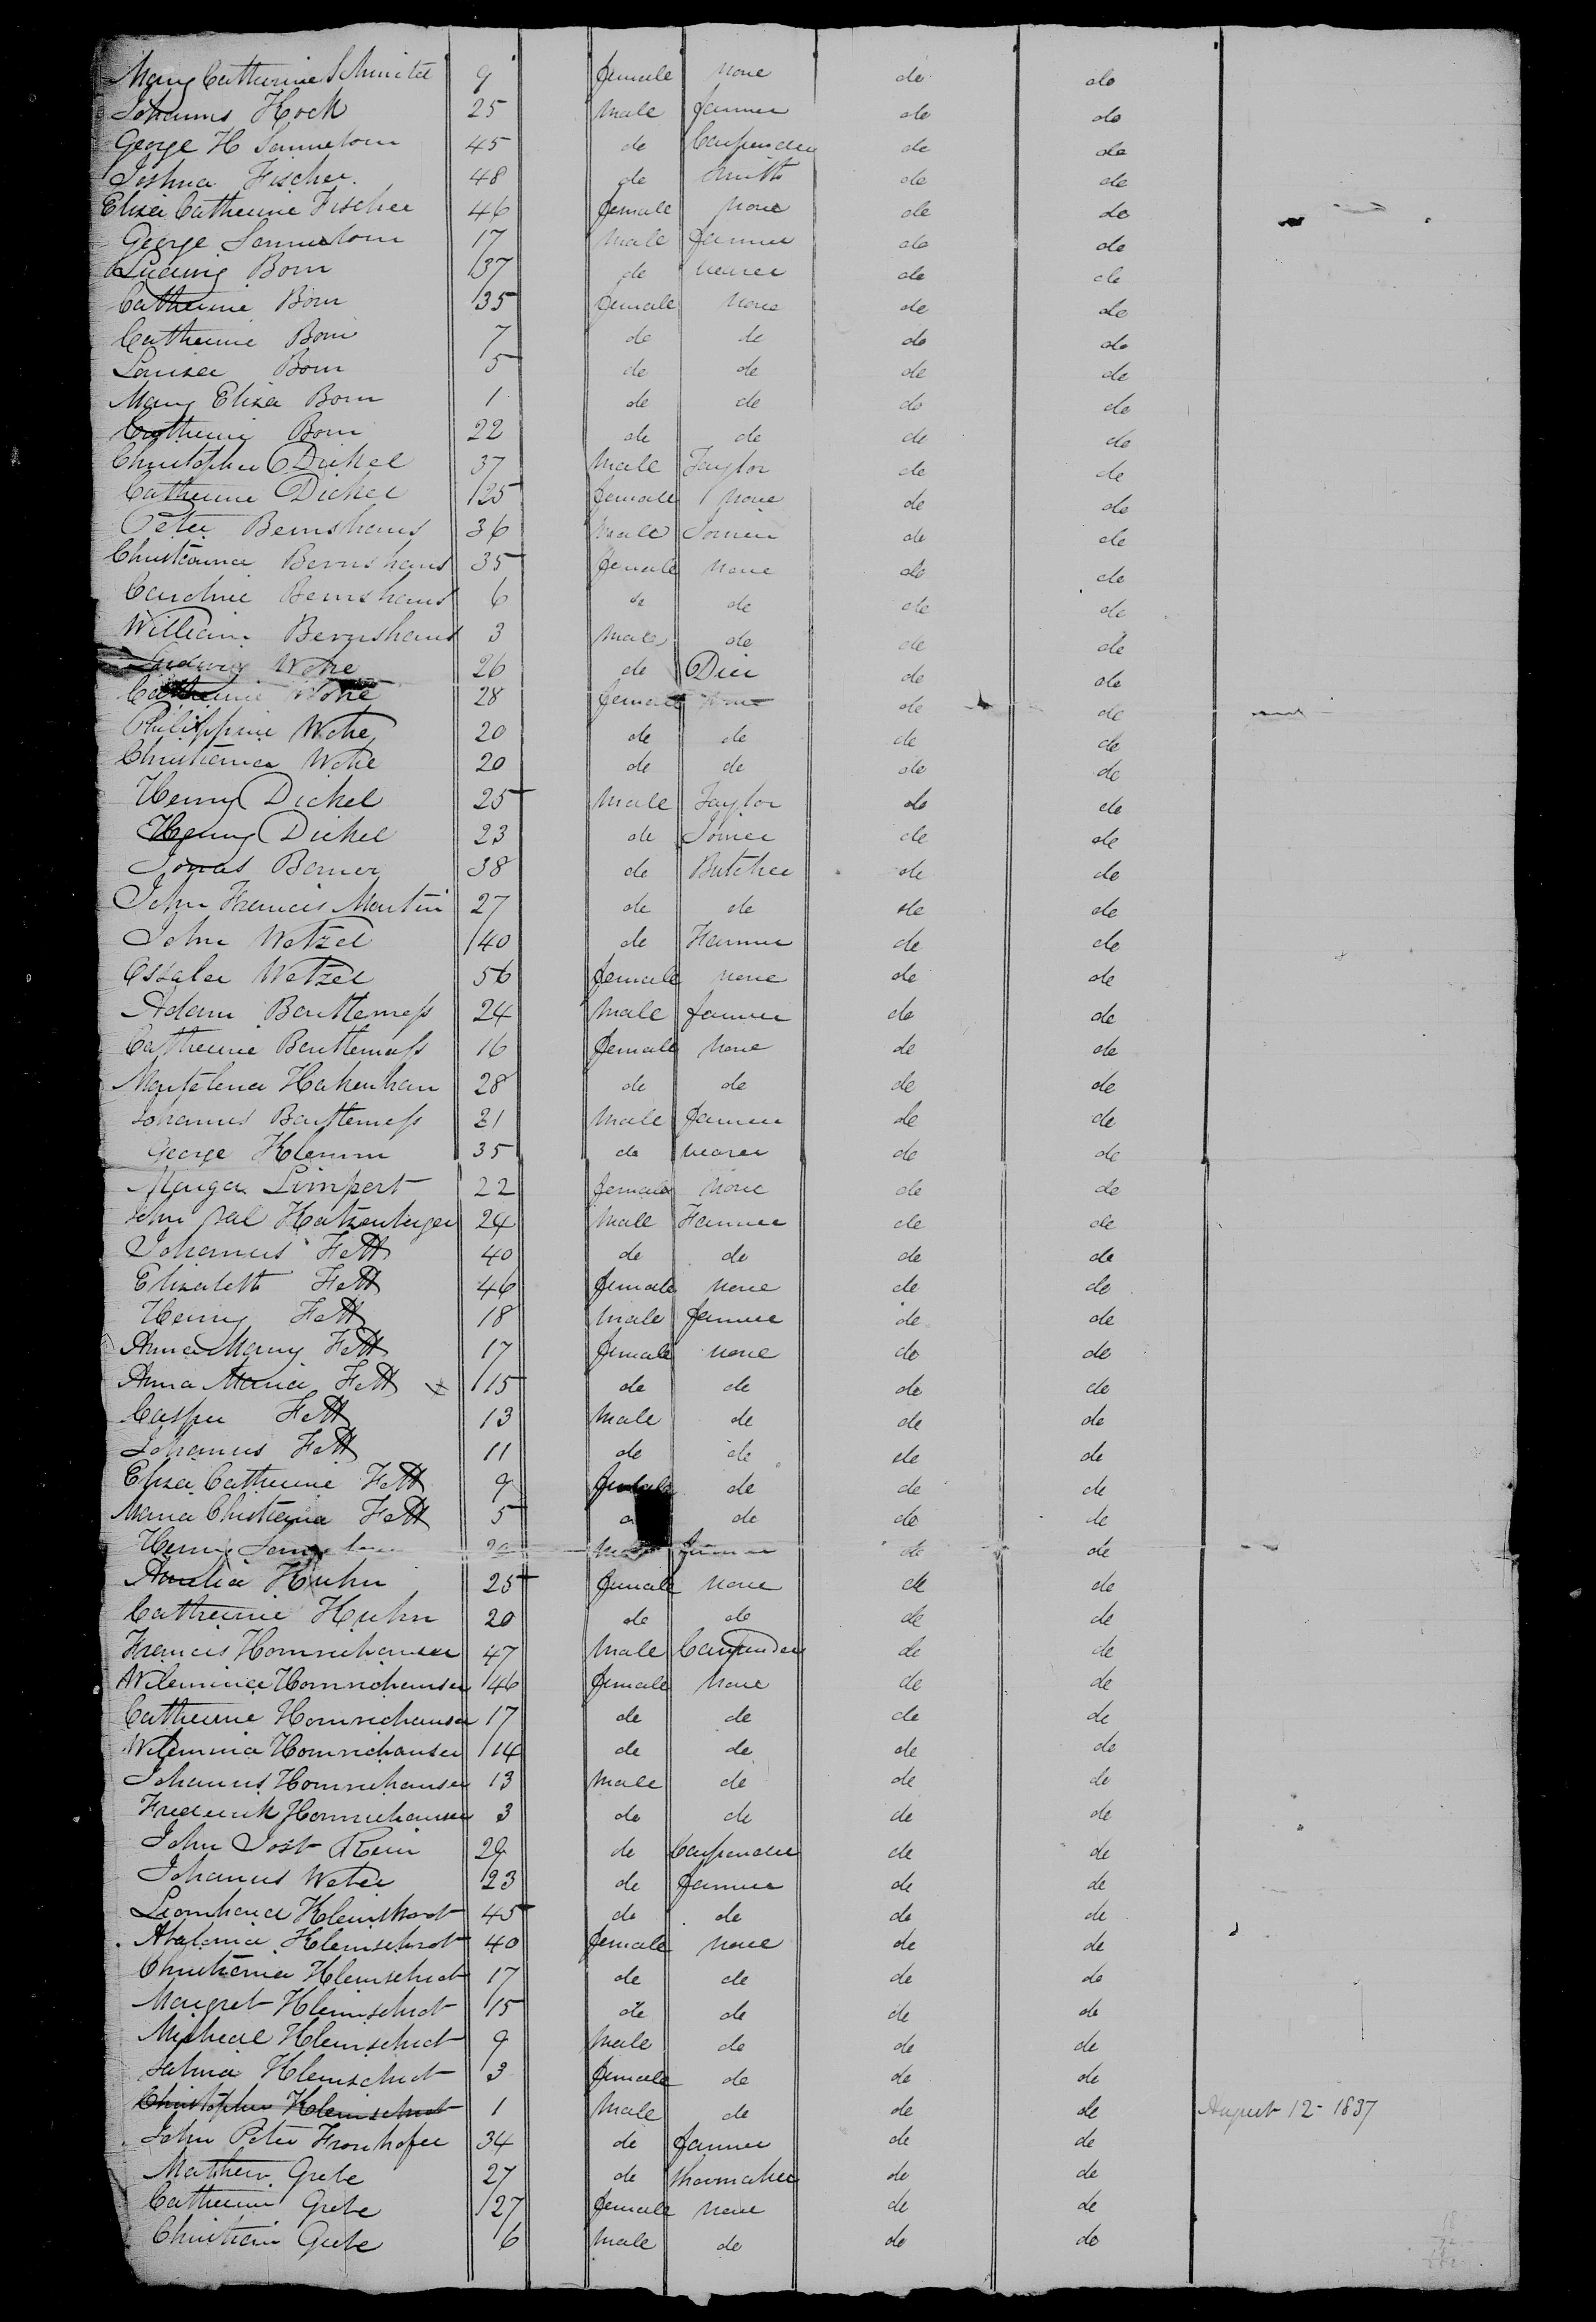 Mary Catherine Schmitd 9 female none do do
Johanns Hock 25 male farmer do do
George H Sannetom 45 do Carpender do do
Joshua Fischer 48 do Smith do do
Eliza Catherine Fischer 46 female none do do
George 17 male farmer do do
Ludwig Born 37 do weaver do do
Catherine Born 35 female none do do
Catherine Born 7 do do do do
Louisa Born 5 do do do do
Mary Eliza Born 1 do do do do
Catherine Born 22 do do do do
Christopher Dickel 37 male Taylor do do
Catherine Dickel 35 female none do do
Peter Bernshaus 36 male Joiner do do
Christianna Bernshaus 35 female none do do
Caroline Bernshaus 6 do do do do
William Bernshaus 3 male do do do
Ludwig 26 do Dier do do
Catherine 28 female none do do
Philippine 20 do do do do
Christianna 20 do do do do
Henry Dickel 25 male Taylor do do
Henry Dickel 23 do Joiner do do
Jonas Berner 38 do Butcher do do
John Francis Martin 27 do do do do
John Wetzel 40 do Farmer do do
Wetzel 56 female none do do
Adam Bauttemess 24 male farmer do do
Catherine Bauttemess 16 female none do do
Hakenhan 28 do do do do
Johanns Bauttemess 21 male farmer do do
George Klemm 35 do weaver do do
Marga Limpert 22 female none do do
John Hatzenberger 24 male Farmer do do
Johanns Fett 40 do do do do
Elizabeth Fett 46 female none do do
Henry Fett 18 male farmer do do
Anna Mary Fett 17 female none do do
Anna Maria Fett x 15 do do do do
Casper Fett 13 male do do do
Johanns Fett 11 do do do do
Eliza Catherine Fett 9 female do do do
Maria Christiana Fett 5 do do do
Henry do do
Amelia Huhn 25 female none do do
Catherine Huhn 20 do do do do
Francis Homrichauser 47 male Carpender do do
Wilemina Homrichauser 46 female none do do
Catherine Homrichauser 17 do do do do
Wilemina Homrichauser 14 do do do do
Johanns Homrichauser 13 male do do do
Frederick Homrichauser 3 do do do do
John Jost Rein 29 do Carpender do do
Johanns Weber 23 do farmer do do
Leonhard Kleinschrot 45 do do do do
Kleinschrot 40 female none do do
Christiana Kleinschrot 17 do do do do
Margret Kleinschrot 15 do do do do
Micheal Kleinschrot 9 male do do do
Kleinschrot 3 female do do do
Christopher Kleinschrot 1 male do do do August 12 - 1837
John Peter Fronhofer 34 do farmer do do
Mathew Grebe 27 do Shoemaker do do
Catherine Grebe 27 female none do do
Christian Grebe 6 male do do do